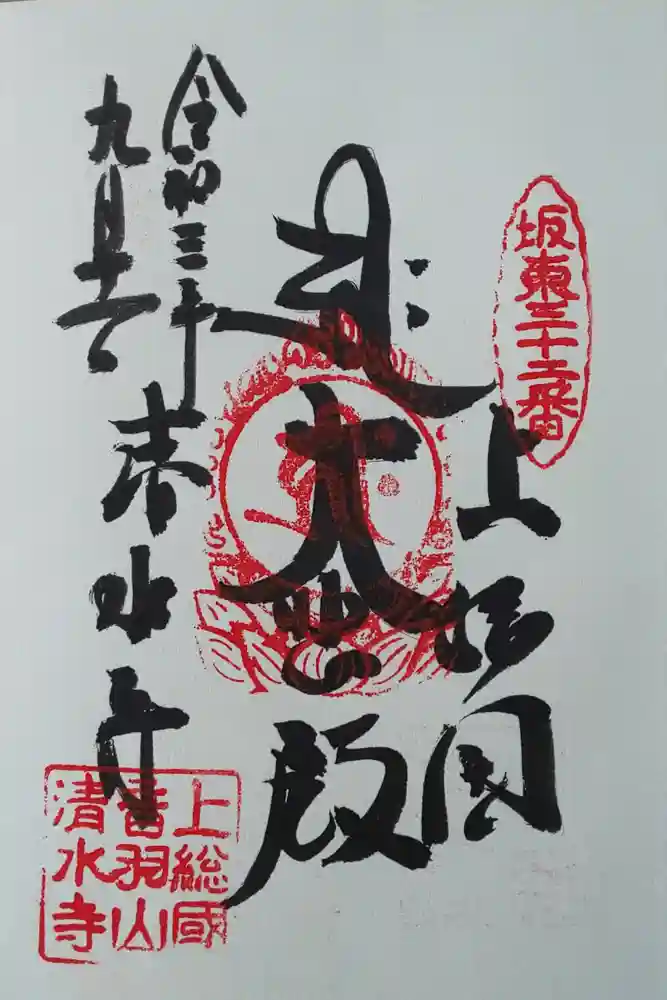 坂東三十二番
上総国
大悲殿
令和三年
九月
清水寺
上総國
音羽山
清水寺